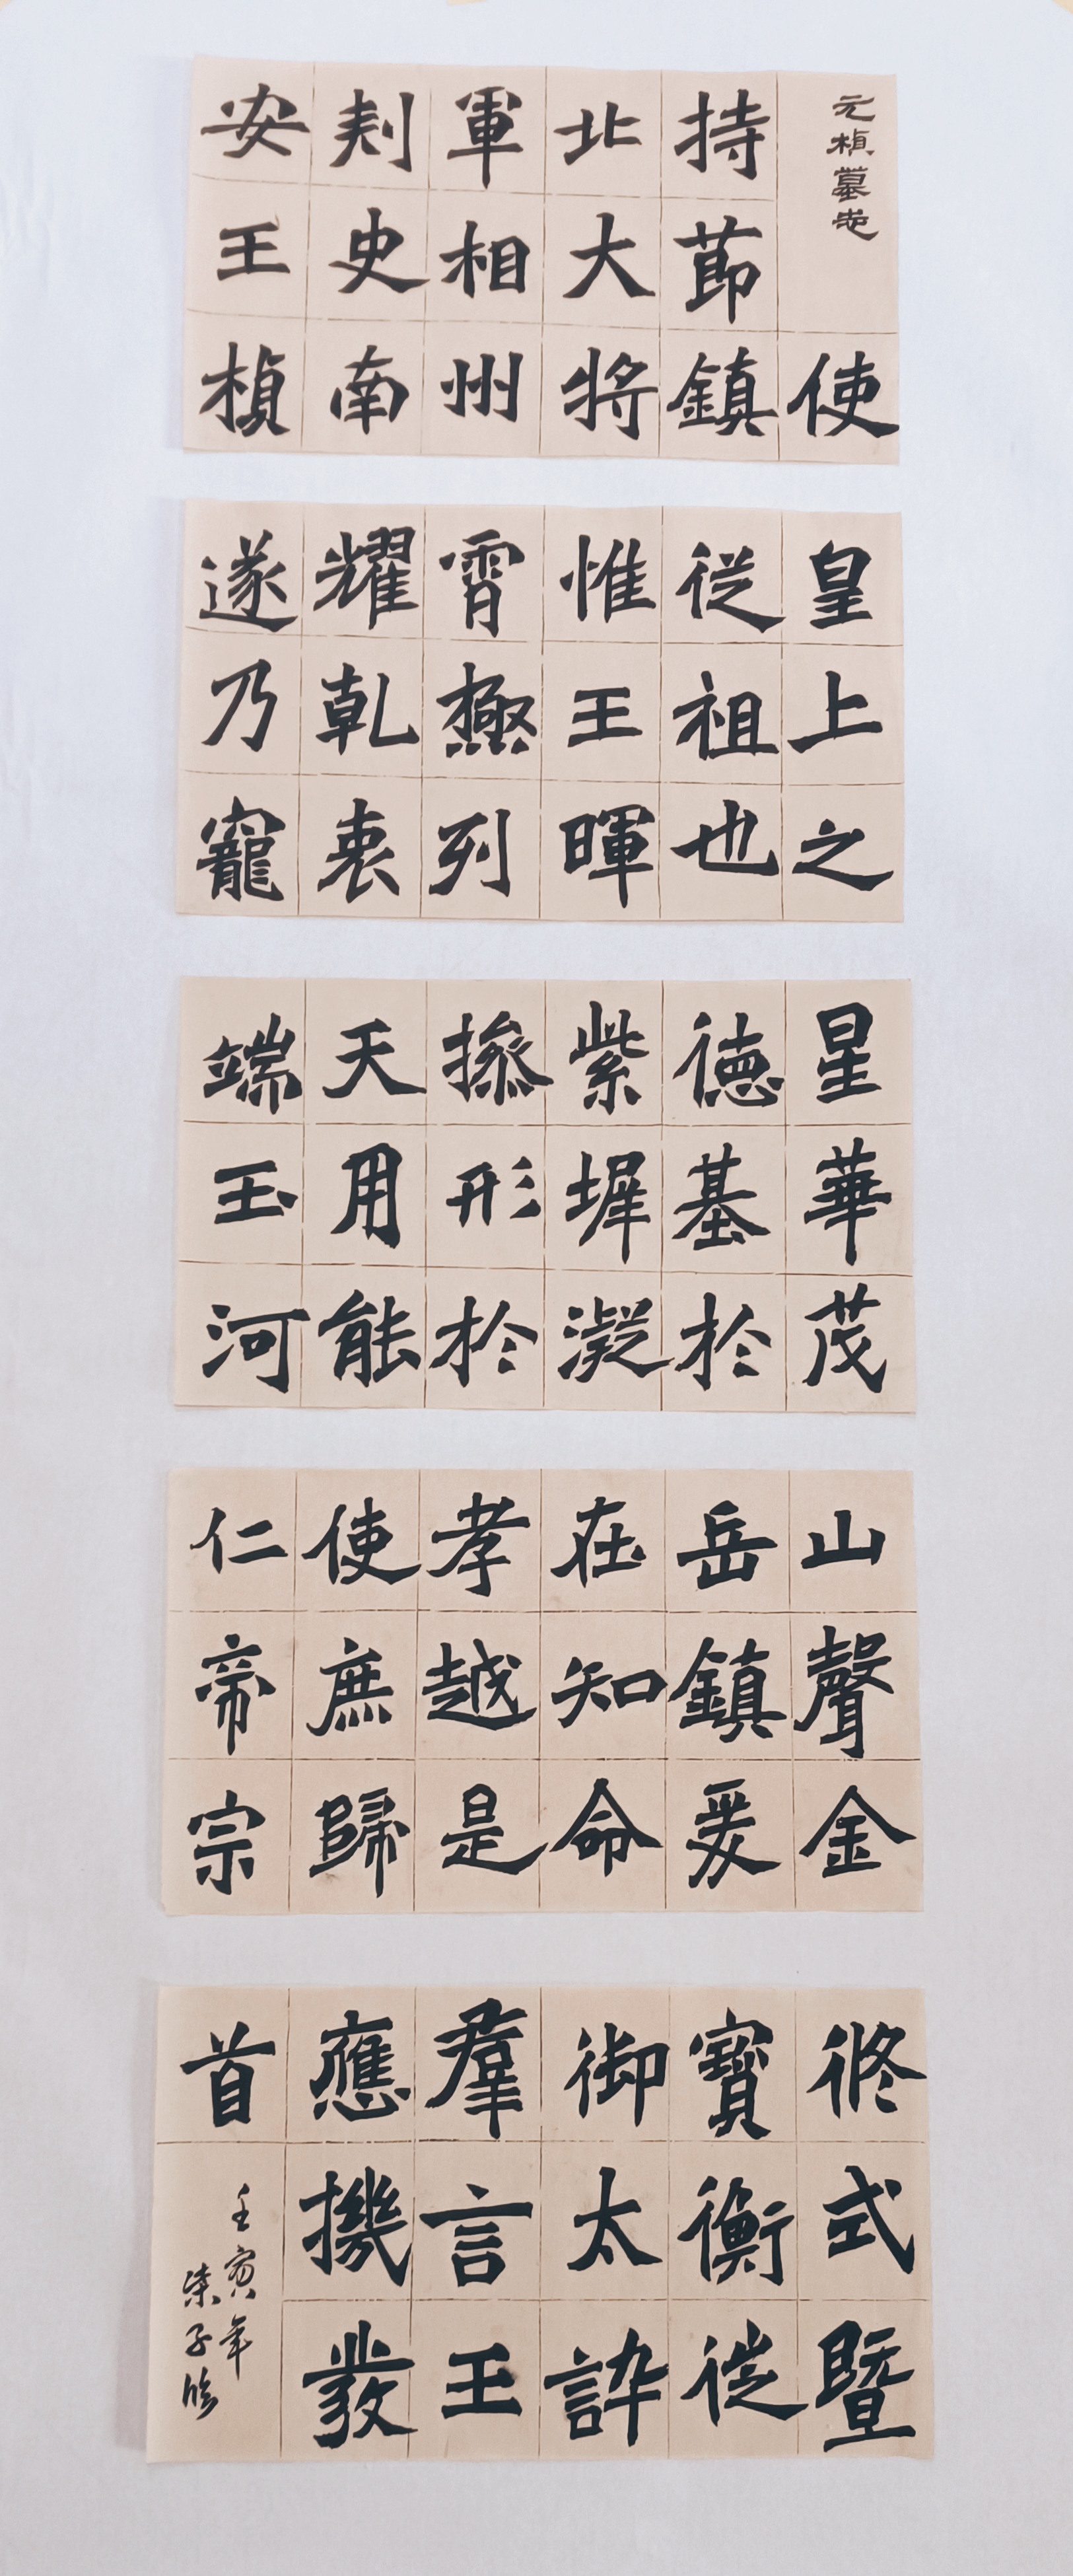 元楨墓志
使
持節鎮
北大將
軍相州
刾史南
安王楨
皇上之
從祖也
惟王暉
霄極列
耀乾衷
遂乃寵
星華茂
德基於
紫墀凝
摻形於
天用能
端玉河
山聲金
岳鎮爰
在知命
孝越是
使庶歸
仁帝宗
式暨
寶衡徙
御太誶
羣言王
應機發
首
壬寅年
子臨